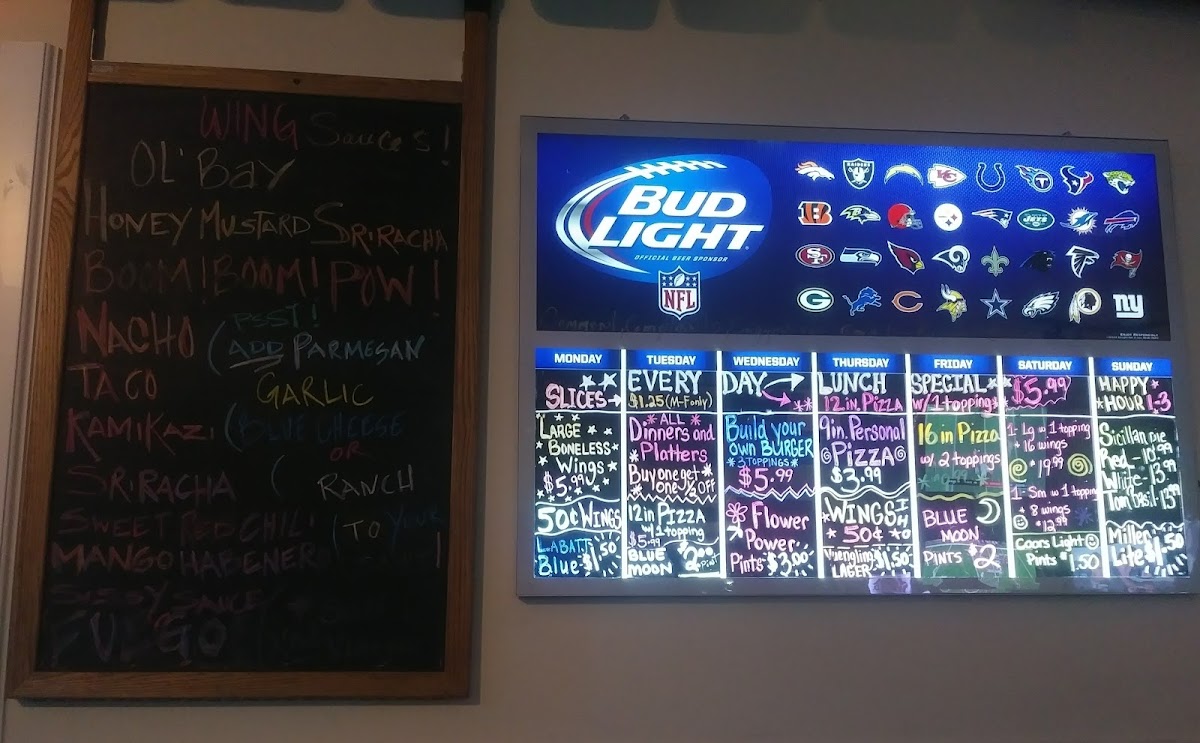 WING Sauces!
OL' BAY
HONEY MUSTARD SRIRACHA
BOOM! BOOM! POW!
PSST!
NACHO (ADD PARMESAN
TACO GARLIC
KAMIKAZI (BLUE CHEESE
OR
SRIRACHA ( RANCH
SWEET RED CHILI (TO YOUR
MANGO HABENERO !
SAUCE
BUD
LIGHT
OFFICIAL BEER SPONSOR
NFL
RAIDERS
KC
JETS
SF
G
C
ny
MONDAY TUESDAY WEDNESDAY THURSDAY FRIDAY SATURDAY SUNDAY
SLICES→ EVERY DAY LUNCH SPECIAL $5.99
$1.25 (M-F only) 12 in. PIZZA w/ 1 topping
LARGE
BONELESS
Wings
$5.99
50¢ WINGS
LABATT
Blue $1.50
ALL
Dinners and
Platters
Buy one get
one 1/2 OFF
12 in PIZZA
w 1 topping
$5.99
BLUE
MOON $2.00 Pint
Build your
own BURGER
3 TOPPINGS
$5.99
Flower
Power
Pints $3.00
9in. Personal
PIZZA
$3.99
WINGS IH
50¢
Yuengling $1.50
LAGER
16 in Pizza
w/ 2 toppings
BLUE
MOON
PINTS $2
1- Lg w 1 topping
+ 16 wings
$19.99
1 Sm w 1 topping
+ 8 wings
$12.99
Coors Light
Pints $1.50
HAPPY
HOUR 1-3
Sicilian pie
Red - 10.99
White - 13.99
Tom Basil - 13.99
Miller
Lite $1.50